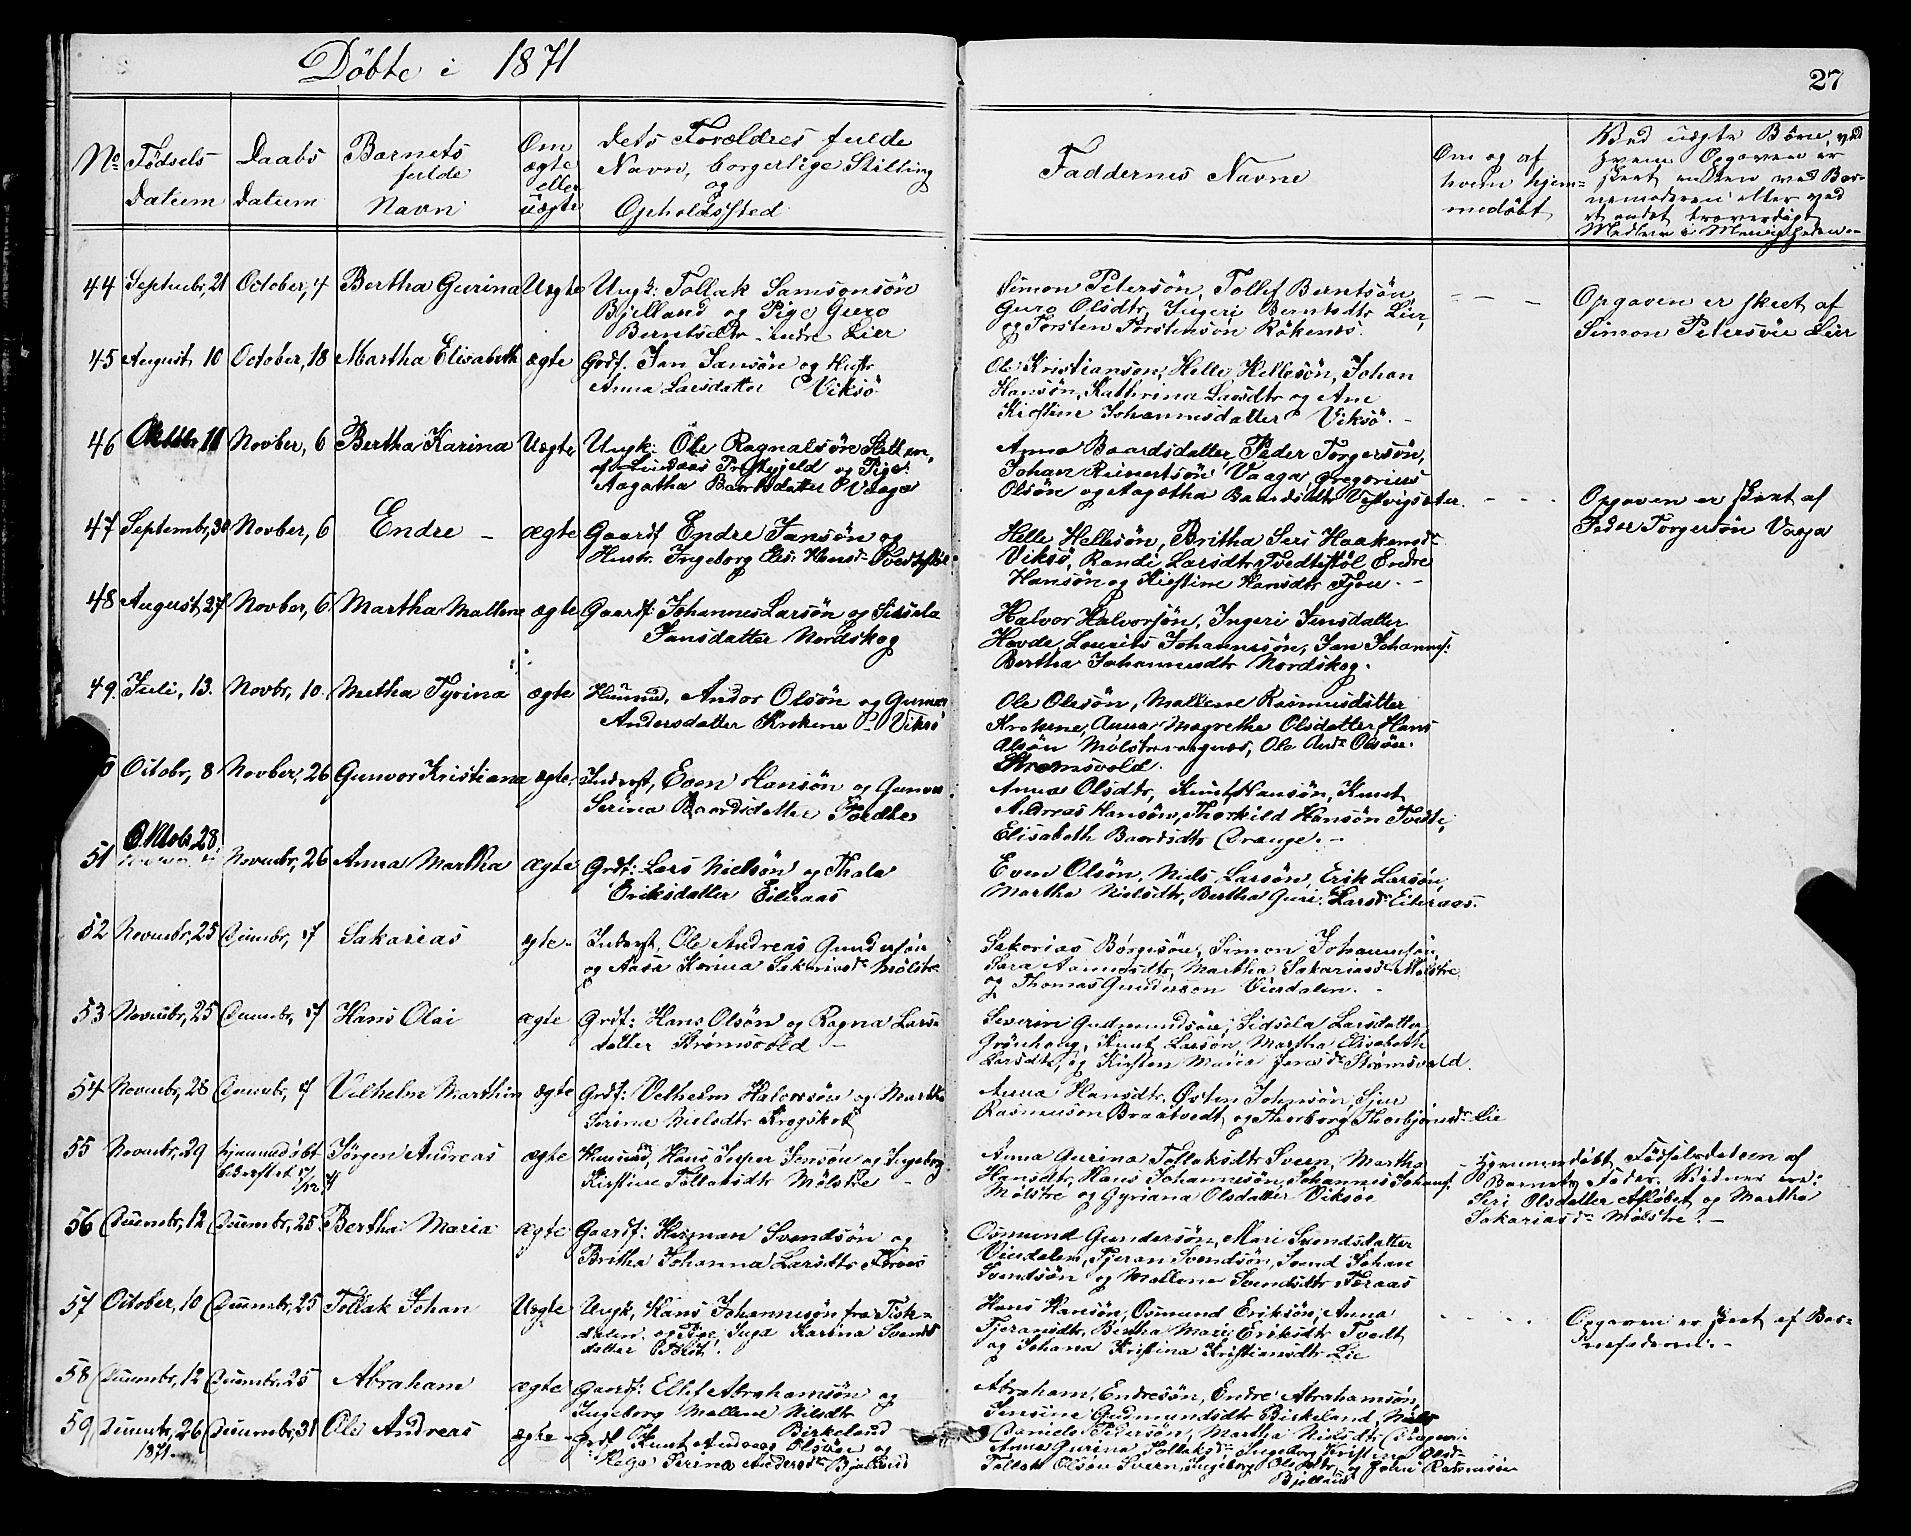 Döbte i 1871
27
No
Födsels Datum
Daabs Datum
Barnets fulde Navn
Om ægte eller uægte
Dets Forældres fulde
Navn, borgerlige Stilling
og
Opholdssted
Faddernes Navne
Om og af
hvem hjem-
medöbt
Ved uægte Börn, ved
hvem Opgaven er
skeet enten ved Bar-
nemoderen eller ved
et andet troværdigt
Medlem i Menigheden.-
44 Septembr, 21 October, 4 Bertha Gurina Uægte Ungk: Tollak Samsonsön
Bjelland og Pige Guro
Berntsdtr indre Lier
Simon Petersön, Tollef Berntsön
Guro Olsdtr, Ingeri Berntsdtr Lier,
og Torsten Torstensön Rökenes.
Opgaven er skeet af
Simon Petersön Lier
45 August, 10 October, 18 Martha Elisabeth ægte Grdf. Jan Jansön og Hustr
Anna Larsdatter Viksö
Ole Kristiansön, Helle Hellesön, Johan
Hansön, Kathrina Larsdtr og Ane
Kirstine Johannesdatter Viksö.-
46 Oktobr 11 Novber, 6 Bertha Karina Uægte Ungk: Ole Ragnalsön
af Lindaas Prstgjeld og Pige:
Aagatha Baardsdatter Vaage
Anna Baardsdatter, Peder Torgersön,
Johan Reinertsön Vaaga, Gregorius
Olsön og Aagatha Baardsdtr
Opgaven er skeet af
Peder Torgersön Vaaga
47 Septembr, 30 Novber, 6 Endre - ægte Gaardf Endre Jansön og
Hustr. Ingeborg Elis: Hansd Tvedtestöl
Helle Hellesön, Britha Seri Haakensdr
Viksö, Randi Larsdtr Tvedtestöl Endre
Hansön og Kirstine Hansdtr Fjon.-
48 August, 27 Novber, 6 Martha Mallena ægte Gaardf: Johannes Larsön og Sissela
Jansdatter Nordskog
Halvor Halvorsön, Ingeri Jensdatter
Hovde, Lourits Johannesön, Jan Johannes:
Bertha Johannesdtr Nordskog.
49. Juli, 13. Novbr, 10. Metha Tyrina ægte Huusmd, Andor Olsön og Gunnor
Andersdatter Krokene Viksö
Ole Olesön, Mallene Rasmusdatter
Krokene, Anna Magrethe Olsdatter, Hans
Olsön Mölstrevaagnes, Ole Ands Olsön
Strömsvold.
Octobr, 8 Novber, 26 Gunvor Kristiana ægte. Inderst, Even Hansön og Gunvor
Serina Baardsdatter Tvedte
Anna Olsdtr, Knut Hansön, Knut
Andreas Hansön, Thorkild Hansön Tvedte,
Elisabeth Baardsdtr Drange.-
51 Oktob. 28 Novembr, 26 Anna Martha ægte Grdf: Lars Nielsön og Thala
Eriksdatter Eileraas
Even Olsön, Niels Larsön, Erik Larsön,
Martha Nielsdtr, Bertha Guri Larsdr Eileraas.
52 Novembr, 25 Decembr, 17 Sakarias ægte- Inderst, Ole Andreas Gundersön
og Aasa Korina Sakariasdr Mölstre
Sakarias Börgesön, Simon Johannesön
Sara Aamusdtr, Martha Sakariasdr Mölstre
og Thomas Gundersön Vierdalen.
53 Novembr, 25 Decembr, 17 Hans Olai ægte Grdf: Hans Olsön og Ragna Lars-
datter Strömsvold -
Severin Gudmundsön, Sidsela Larsdatter
Grönhoug, Knut Larsön, Martha Elisabeth
Larsdtr, og Kirsten Maria Jensdr Strömsvold.
54 Novembr, 28 Decembr, 17 Vilhelm Marthin ægte Grdf: Velhelm Halvorsön og Martha
Serina Nielsdtr Krogskot
Anna Hansdtr, Östen Johnsön, Sjur
Rasmusön Braatvedt, og Thorborg Thorbjörnsdr Lie
55 Novembr, 29 hjemmedöbt bekræftet 17/12 71 Jörgen Andreas ægte Huusmd, Hans Jesper Jensön og Ingeborg
Kirstine Tollaksdtr Mölstre -
Anna Gurina Tollaksdtr Sveen, Martha
Hansdtr, Hans Johannesön, Johannes Johans:
Mölstre og Gyriana Olsdatter Viksöe
Hjemmedöbt Födselsdatoen af
Barnets Fader. Vidner ere:
Seri Olsdatter Aflöbet og Martha
Sakariasdr Mölstre.-
56 Decembr, 12 Decembr, 25 Bertha Maria ægte Gaardf: Herman Svendsön og
Britha Johanna Larsdtr Foraas
Osmund Gundersön, Mari Svendsdatter
Vierdalen, Tjeran Svendsön, Svend Johan
Svendsön og Mallene Svendsdtr Foraas
57 October, 10 Decembr, 25 Tollak Johan Uægte Ungk, Hans Johannesön fra Fisk-
dalen og Pige Inga Karina Svends
datter
Hans Hansön, Osmund Eriksön, Anna
Tjeransdtr, Bertha Mari Eriksdtr Tvedt
og Johana Kristina Kristiansdtr Lie
Opgaven er skeet af Bar-
nefaderen.-
58 Decembr, 12 Decembr, 25 Abraham ægte Gaardf: Ellef Abrahamsön og
Ingeborg Mallene Nilsdtr
Birkeland
Abraham Endresön, Endre Abrahamsön,
Jensine Gudmundsdtr Birkeland, Niels
Daniel Pedersön, Martha Nielsdtr
59 Decembr, 26 1871. Decembr, 31 Ole Andreas ægte- Grdf. Knut Andreas Olsön og
Helga Serina Andersdr Bjelland
Anna Gurina Tollaksdr Ingeborg Kristina Olsdr
Tollak Olsön Sveen, Ingeborg Olsdtr, og Johan Rasmusön
Bjelland